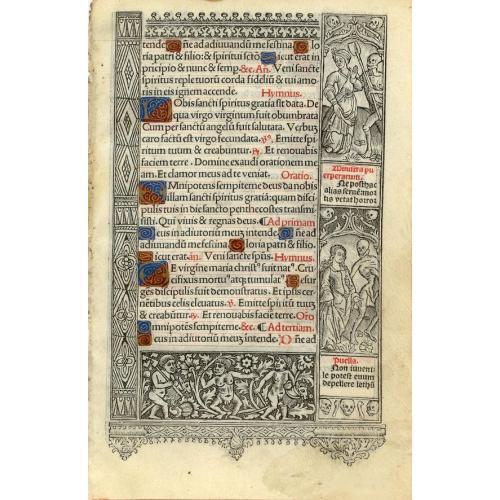 tende. Dñe ad adiuvandũ me festina Glo
ria patri & filio: & spiritui sctõ. Sicut erat in
principio & nunc & semp. &c. Añ. Veni sancte
spiritus reple tuorũ corda fideliũ & tui amo
ris in eis ignem accende. Hymnus.
Nobis sancti spiritus gratia sit data. De
qua virgo virginum fuit obumbrata
Cum per sanctũ angelũ fuit salutata. Verbuz
caro factũ est virgo fecundata. ℣. Emitte spi
ritum tuum & creabuntur. ℟. Et renovabis
faciem terre. Domine exaudi orationem me
am. Et clamor meus ad te veniat. Oratio.
Omnipotens sempiterne deus da nobis
illam sancti spiritus gratiã: quam disci
pulis tuis in die sancto penthecostes transmi
sisti. Qui vivis & regnas deus. ¶ Ad primam
Deus in adiutoriũ meuz intende. Dñe ad
adiuvandũ me festina Gloria patri & filio.
Sicut erat. añ. Veni sancte spũs. Hymnus.
De virgine maria christ⁹ fuit nat⁹. Cru
cifixus mortu⁹ atqz tumulat⁹ Resur
gẽs discipulis fuit demonstratus. Et ipsis cer
nẽtibus celis elevatus. ℣. Emitte spiritũ tuuz
& creabũtur. ℟. Et renovabis faciẽ terre. Oro
Omnipotẽs sempiterne. &c. ¶ Ad tertiam.
Deus in adiutoriũ meuz intende. Dñe ad
pu
erperarum.
Ne post hac
alias
tis vetat horror
Puella.
Non iuvent
le potest euum
depellere lethũ